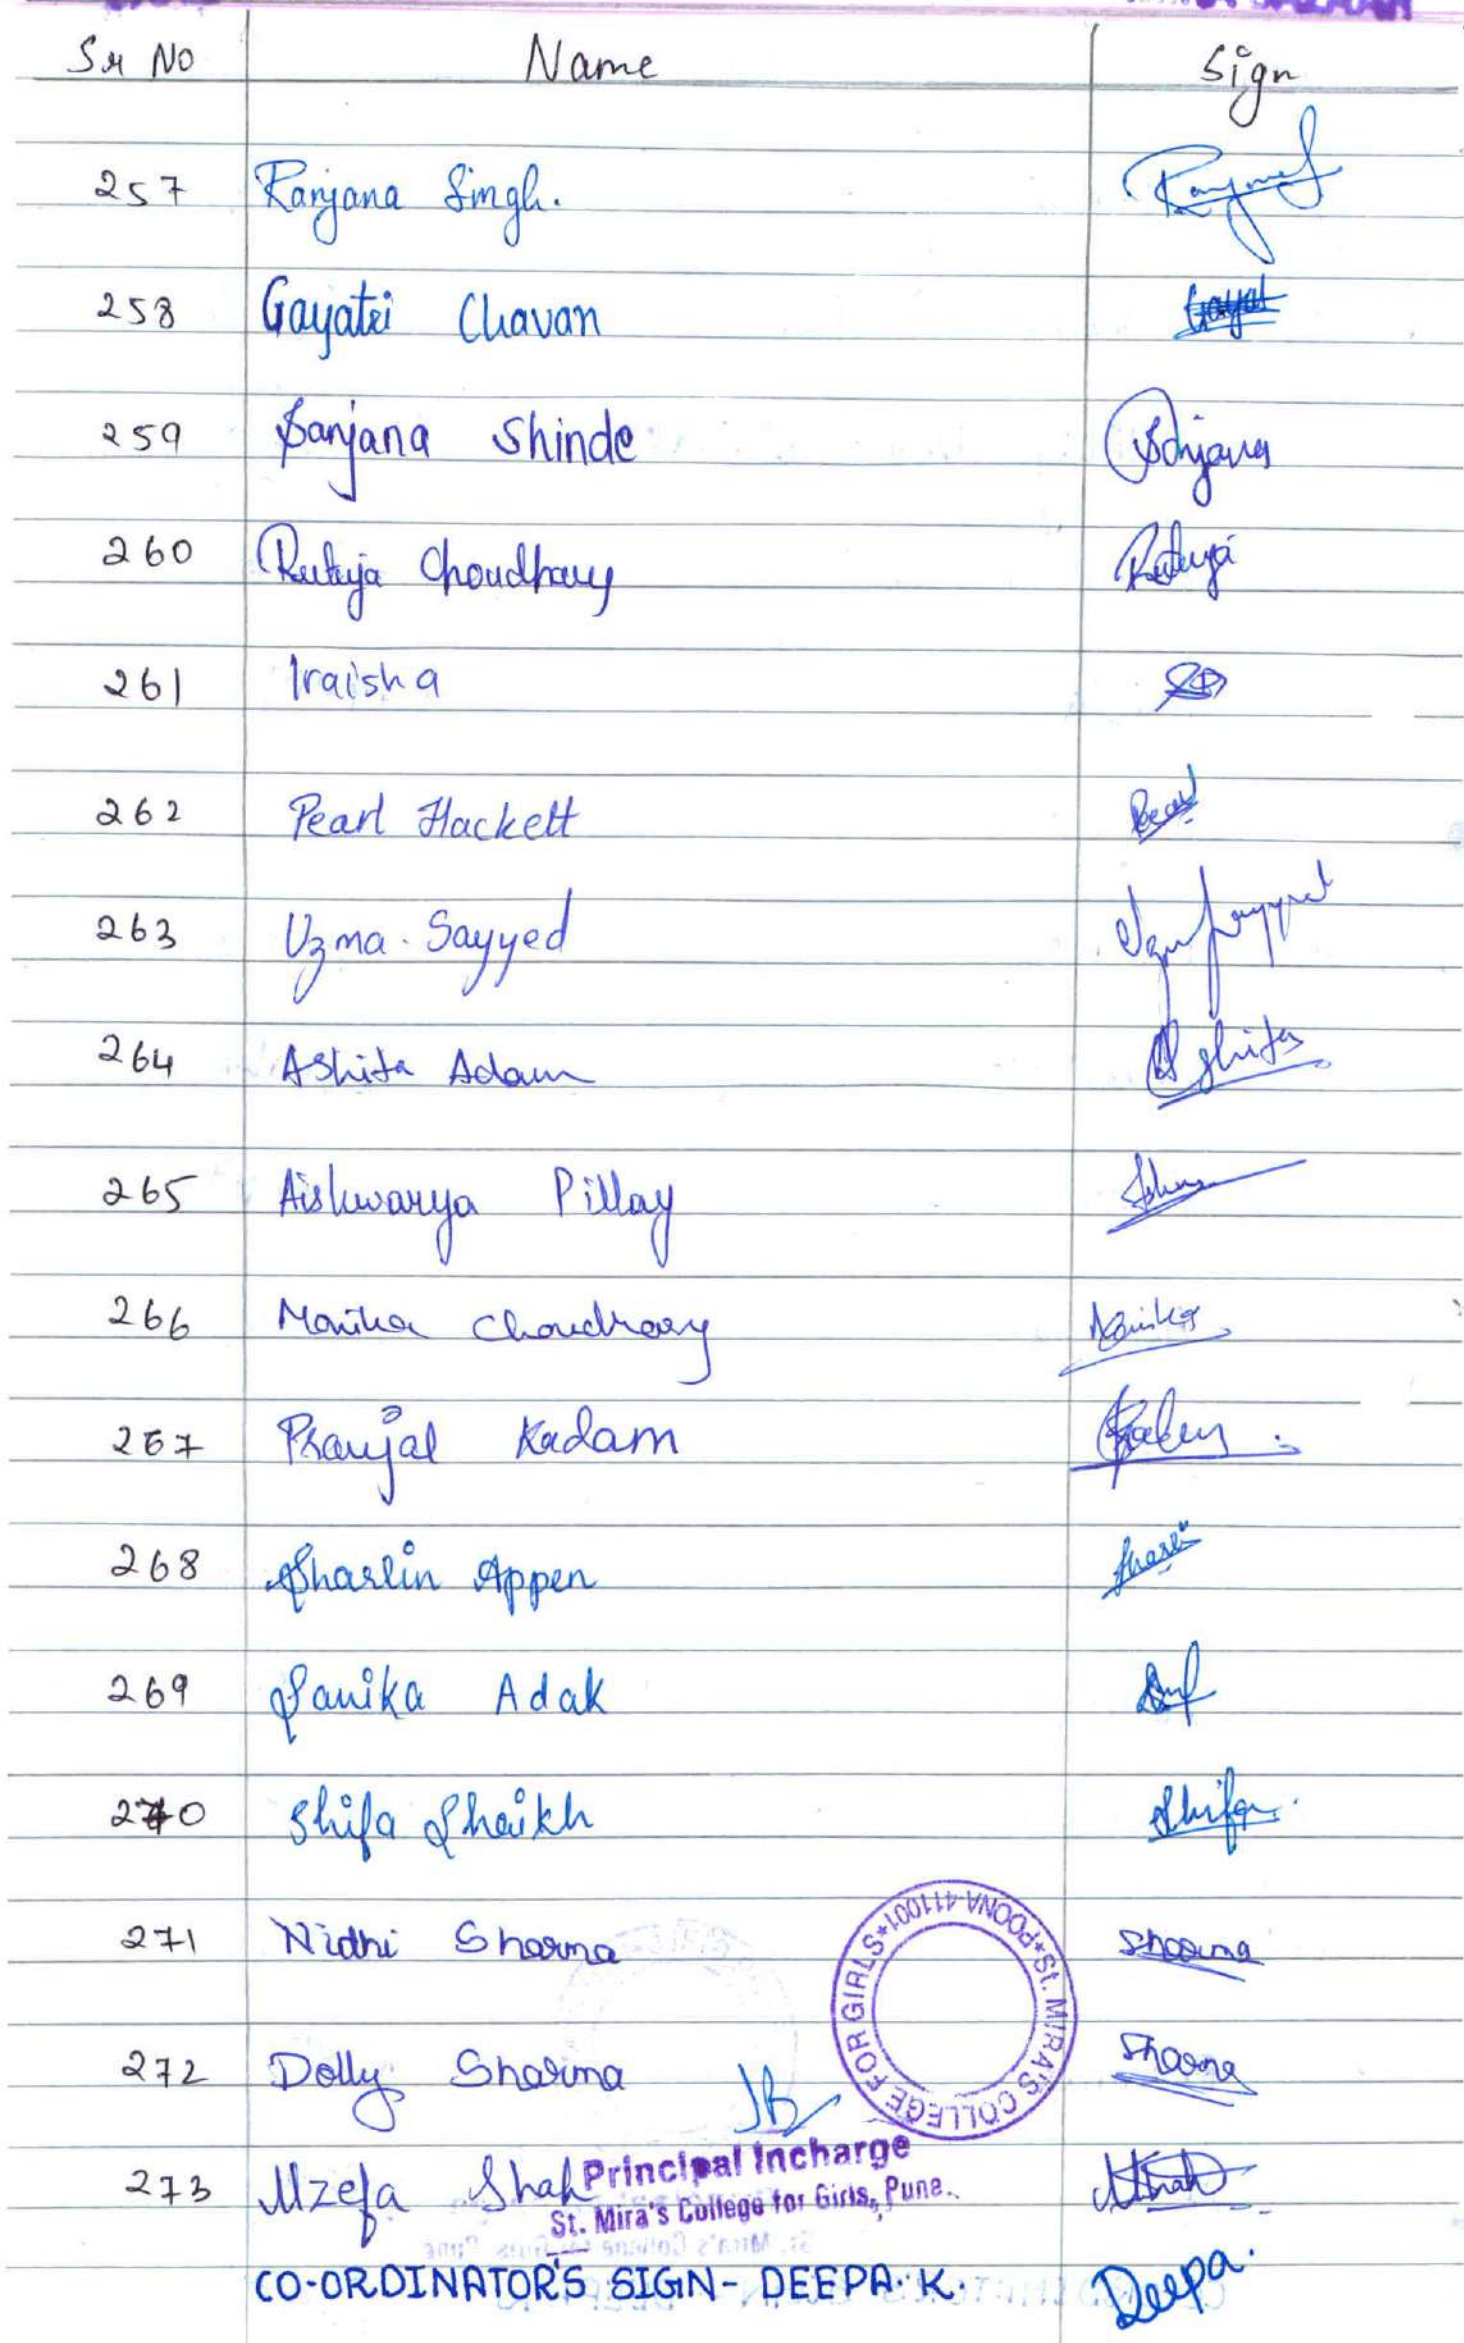 Sr No Name Sign
257 Ranjana Singh.
258 Gayatri Chavan Gayat
259 Sanjana Shinde Sanjana
260 Rutuja Choudhary Rutuja
261 Iraisha
262 Pearl Hackett Pearl
263 Uzma. Sayyed
264 Ashita Adam Ashita
265 Aishwarya Pillay
266 Monika Choudhary Monika
267 Pranjal Kadam
268 Sharlin Appen
269 Sanika Adak
270 Shifa Shaikh Shifa.
271 Nidhi Sharma Sharma
272 Dolly Sharma Sharma
ST. MIRA'S COLLEGE FOR GIRLS*POONA-411001*
273 Uzefa Shah
Principal Incharge
St. Mira's College for Girls, Pune.
CO-ORDINATOR'S SIGN- DEEPA. K. Deepa.